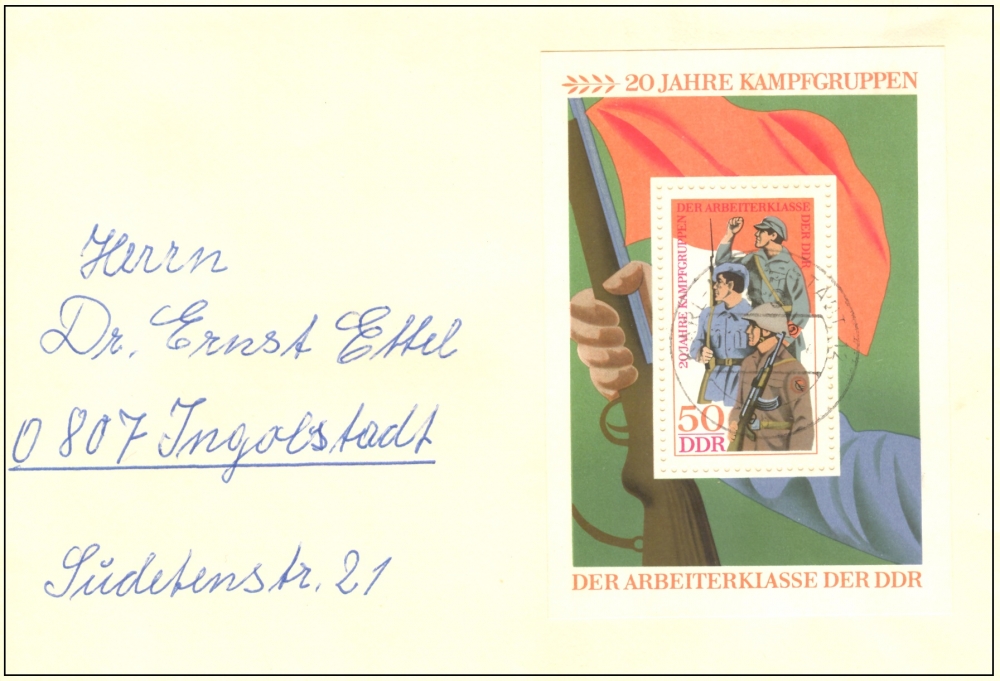 Herrn
Dr. Ernst Ettel
0 807 Ingolstadt
Sudetenstr. 21
20 JAHRE KAMPFGRUPPEN
DER ARBEITERKLASSE
DER DDR
20 JAHRE KAMPFGRUPPEN
50
DDR
DER ARBEITERKLASSE DER DDR